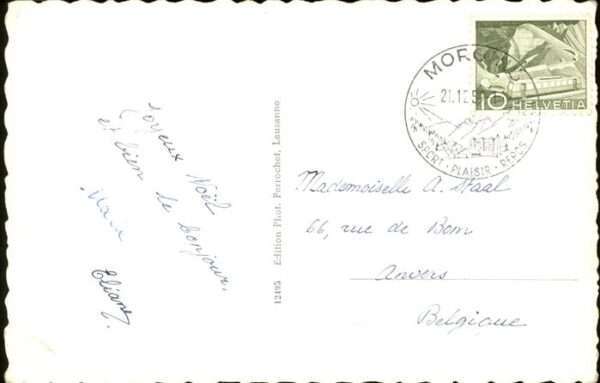 Joyeux Noël
et bien le bonjour.
Eliane
12495 Édition Phot. Perrochet, Lausanne
10 HELVETIA
21.12.5
SPORT - PLAISIR - REPOS
Mademoiselle A. Staal
66, rue de Bom
Anvers
Belgique